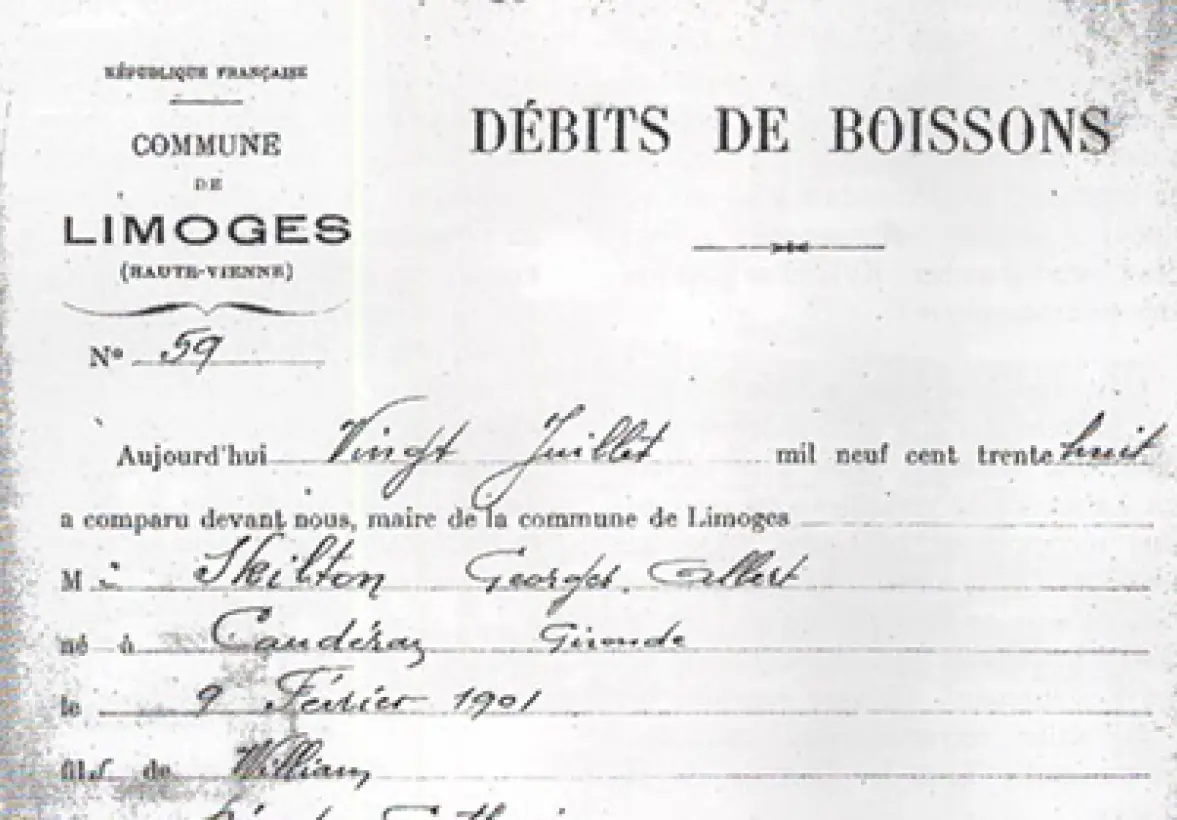 RÉPUBLIQUE FRANÇAISE
COMMUNE
DE
LIMOGES
(HAUTE-VIENNE)
N° 59
DÉBITS DE BOISSONS
Aujourd'hui Vingt Juillet mil neuf cent trente huit
a comparu devant nous, maire de la commune de Limoges
M : Skilton Georges Albert
né à Caudéran Gironde
le 9 Février 1901
fils de William